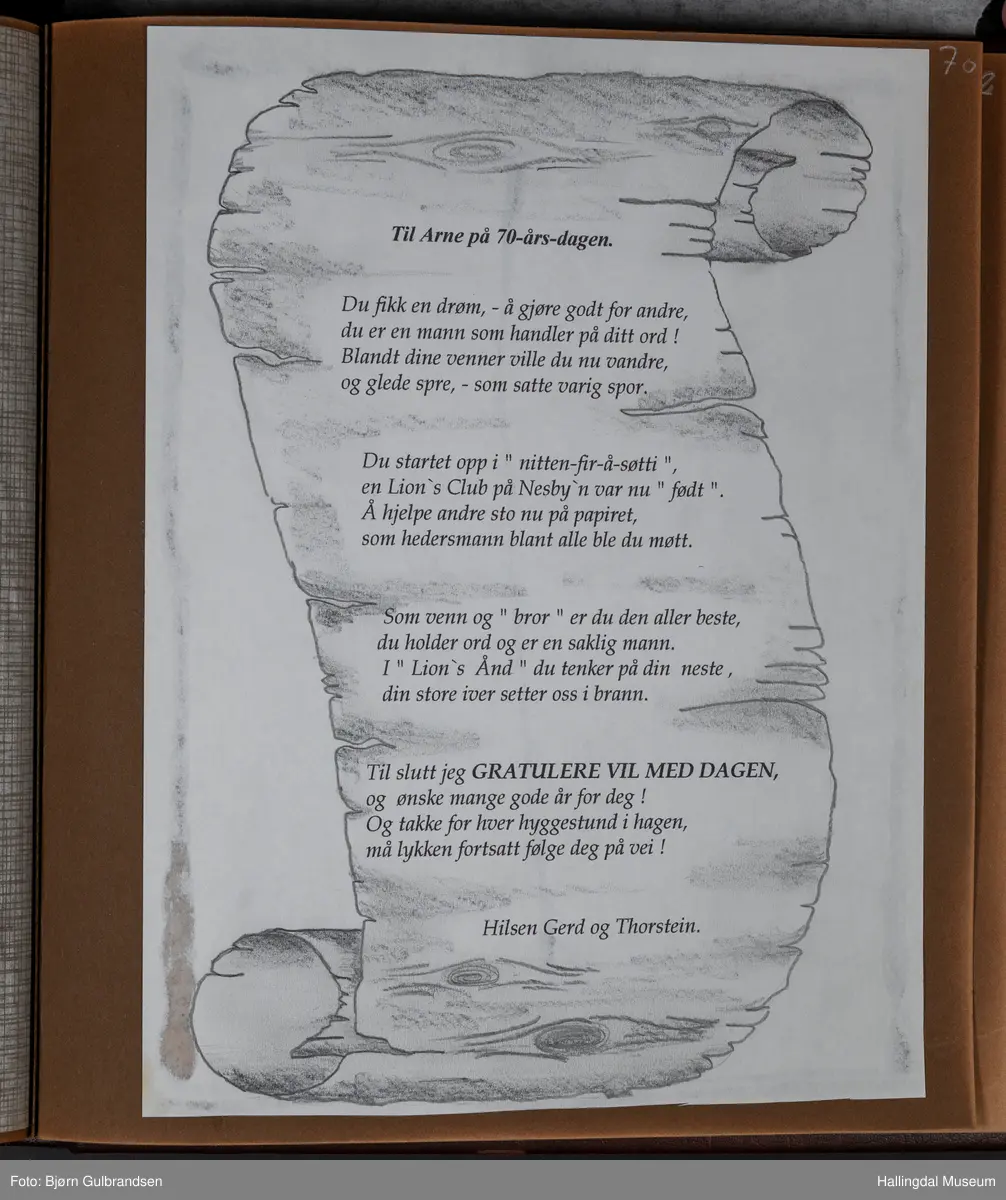 70
2
Til Arne på 70-års-dagen.
Du fikk en drøm, - å gjøre godt for andre,
du er en mann som handler på ditt ord !
Blandt dine venner ville du nu vandre,
og glede spre, - som satte varig spor.
Du startet opp i " nitten-fir-å-søtti ",
en Lion`s Club på Nesby`n var nu " født ".
Å hjelpe andre sto nu på papiret,
som hedersmann blant alle ble du møtt.
Som venn og " bror " er du den aller beste,
du holder ord og er en saklig mann.
I " Lion`s Ånd " du tenker på din neste ,
din store iver setter oss i brann.
Til slutt jeg GRATULERE VIL MED DAGEN,
og ønske mange gode år for deg !
Og takke for hver hyggestund i hagen,
må lykken fortsatt følge deg på vei !
Hilsen Gerd og Thorstein.
Foto: Bjørn Gulbrandsen
Hallingdal Museum